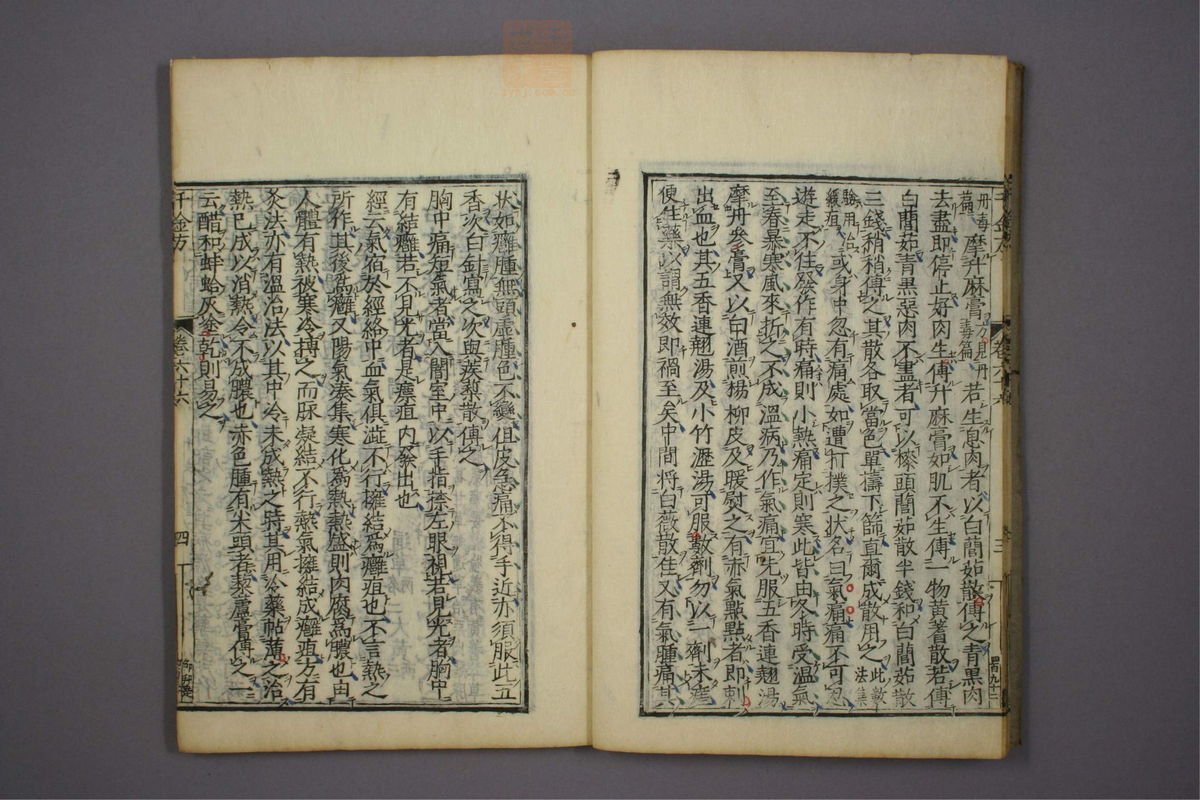 丹毒篇摩升麻膏方見丹毒篇若生息肉者以白䕡茹散傅之青黑肉
去盡即停止好肉生傅升麻膏如肌不生傅一物黃蓍散若傅
白䕡茹青黑惡肉不盡者可以㯃頭䕡茹散半錢和白䕡茹散
三錢稍稍傅之其散各取當色單擣下篩直爾成散用之此數法集
驗用治緩疽或身中忽有痛處如遭打撲之狀名曰氣痛痛不可忍
遊走不住發作有時痛則小熱痛定則寒此皆由冬時受溫氣
至春暴寒風來折之不成溫病乃作氣痛宜先服五香連翹湯
摩丹參膏又以白酒煎楊柳皮及暖熨之有赤氣點點者即刺
出血也其五香連翹湯及小竹瀝湯可服數劑勿以一劑未瘥
便住藥以謂無效即禍至矣中間將白薇散佳又有氣腫痛其
狀如癰腫無頭虛腫色不變但皮急痛不得手近亦須服此五
香次白針瀉之次與蒺䔧散傅之
胸中痛短氣者當入闇室中以手指捺左眼視若見光者胸中
有結癰若不見光者是瘭疽內發出也
經云氣宿於經絡中血氣俱澁不行擁結爲癰疽也不言熱之
所作其後爲癰又陽氣湊集寒化爲熱熱盛則肉腐爲膿也由
人體有熱被寒冷搏之而脈凝結不行熱氣擁結成癰疽方有
灸法亦有溫治法以其中冷未成熱之時其用冷藥帖薄之治
熱已成以消熱令不成膿也赤色腫有尖頭者藜蘆膏傅之一
云醋和蚌蛤灰塗乾則易之
千金方
卷六十六
四